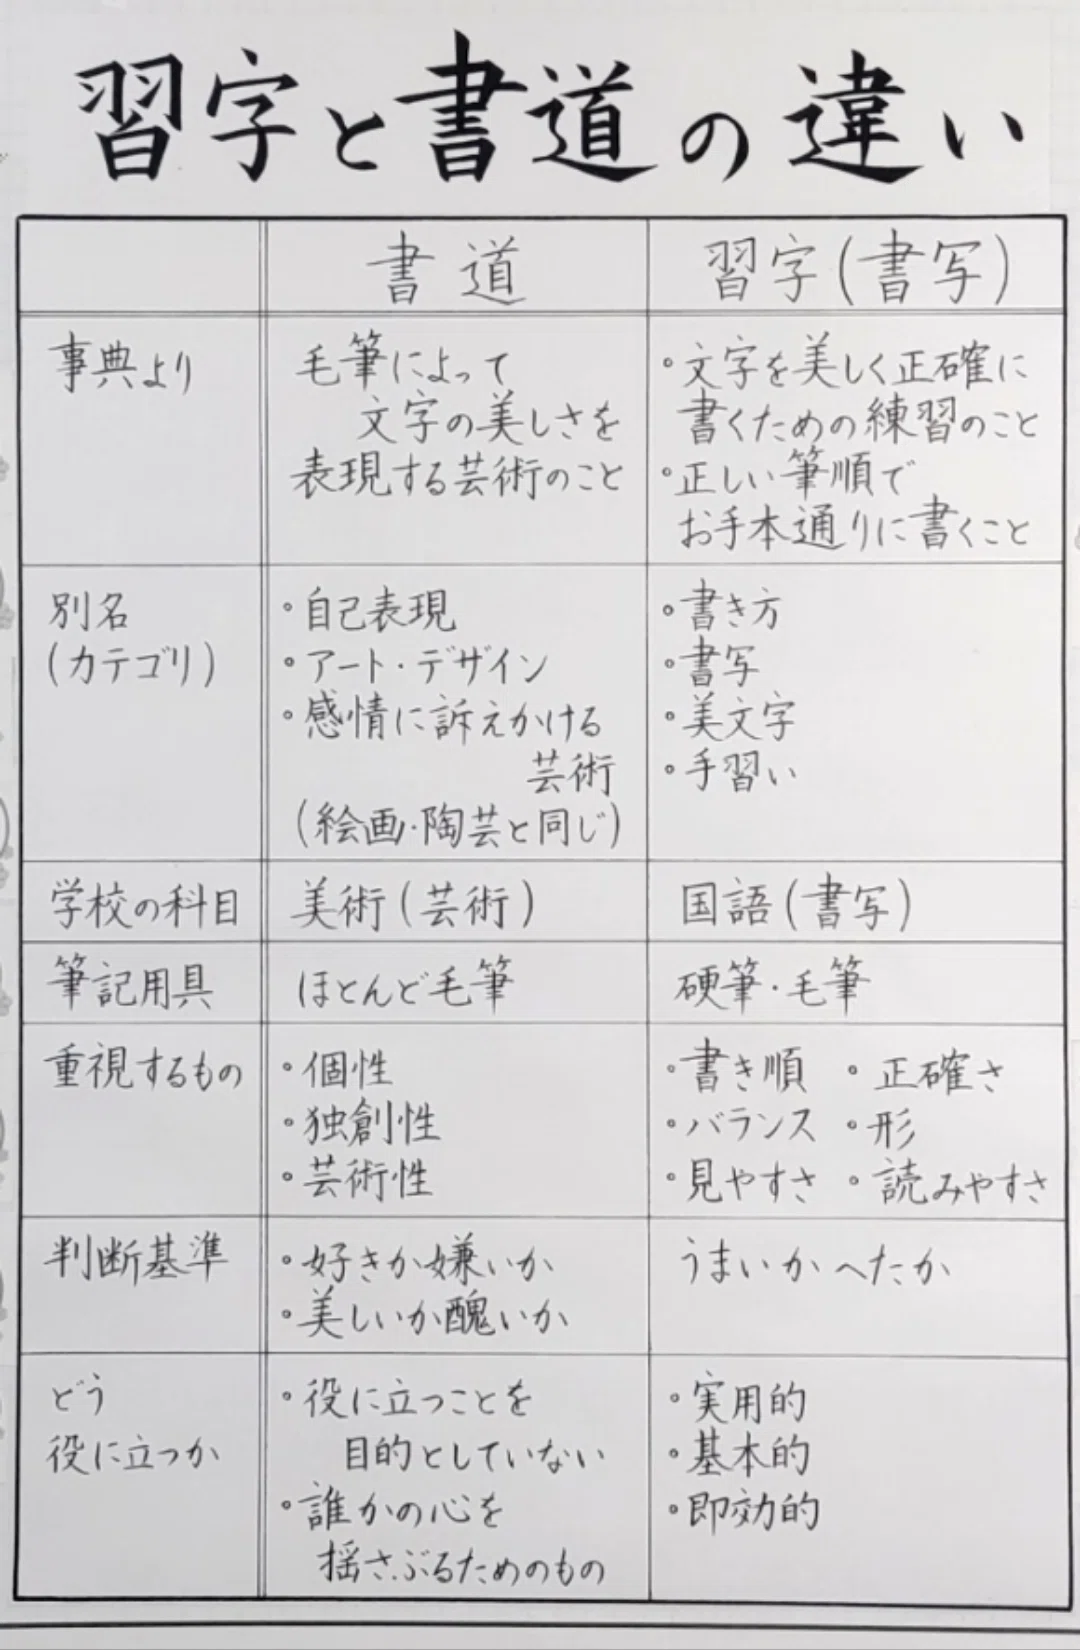 習字と書道の違い
書道
習字(書写)
事典より
毛筆によって
文字の美しさを
表現する芸術のこと
・文字を美しく正確に
書くための練習のこと
・正しい筆順で
お手本通りに書くこと
別名
(カテゴリ)
・自己表現
・アート・デザイン
・感情に訴えかける
芸術
(絵画・陶芸と同じ)
・書き方
・書写
・美文字
・手習い
学校の科目
美術(芸術)
国語(書写)
筆記用具
ほとんど毛筆
硬筆・毛筆
重視するもの
・個性
・独創性
・芸術性
・書き順 ・正確さ
・バランス ・形
・見やすさ ・読みやすさ
判断基準
・好きか嫌いか
・美しいか醜いか
うまいかへたか
どう
役に立つか
・役に立つことを
目的としていない
・誰かの心を
揺さぶるためのもの
・実用的
・基本的
・即効的